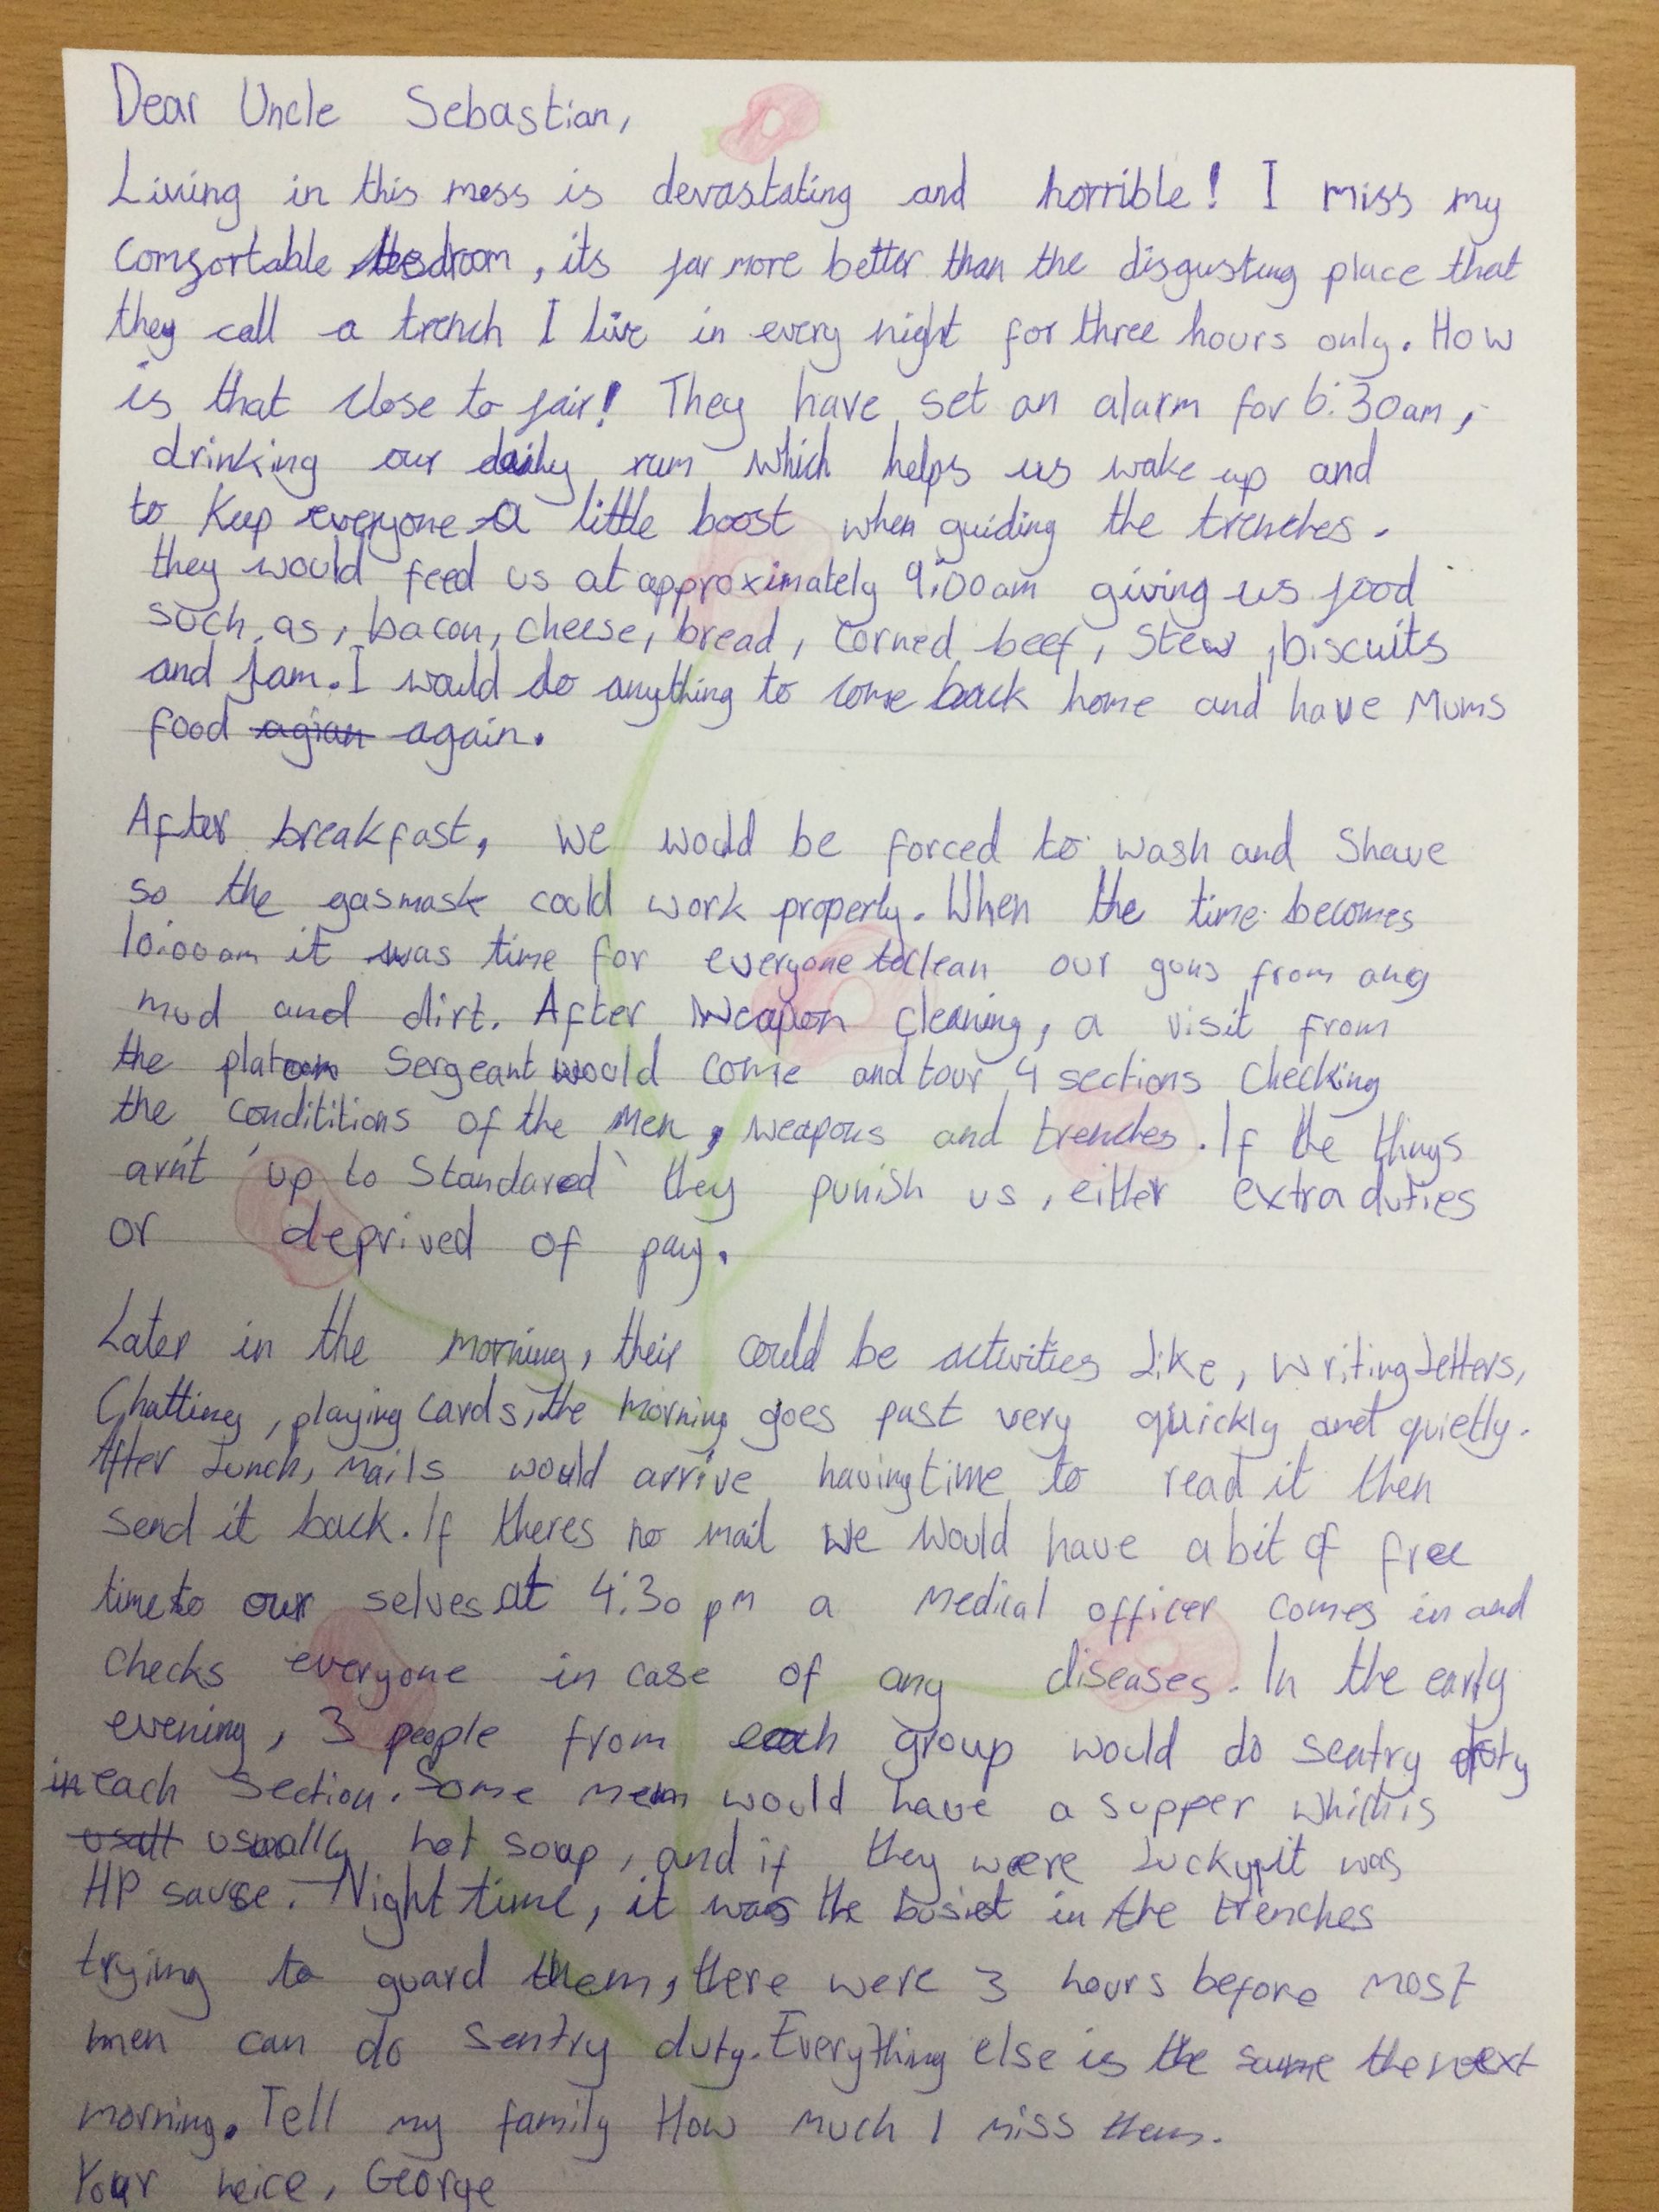 Dear Uncle Sebastian,
Living in this mess is devastating and horrible! I miss my
comfortable bedroom, its far more better than the disgusting place that
they call a trench I live in every night for three hours only. How
is that close to fair! They have set an alarm for 6:30am,
drinking our daily rum which helps us wake up and
to keep everyone a little boost when guiding the trenches.
they would feed us at approximately 9:00am giving us food
such, as, bacon, cheese, bread, corned beef, stew, biscuits
and jam. I would do anything to come back home and have Mums
food agian again.
After breakfast, we would be forced to wash and shave
so the gasmask could work properly. When the time becomes
10:00am it was time for everyone to clean our guns from any
mud and dirt. After weapon cleaning, a visit from
the platoon Sergeant would come and tour 4 sections checking
the condititions of the men, weapons and trenches. If the things
arn't 'up to Standared' they punish us, either extra duties
or deprived of pay.
Later in the morning, their could be activities like, writing letters,
Chatting, playing cards, the morning goes past very quickly and quietly.
After lunch, mails would arrive having time to read it then
send it back. If theres no mail we would have a bit of free
time to our selves at 4:30 pm a medical officer comes in and
checks everyone in case of any diseases. In the early
evening, 3 people from each group would do sentry duty
in each section. Some men would have a supper which is
usall usually hot soup, and if they were lucky it was
HP sauce. Night time, it was the busiest in the trenches
trying to guard them, there were 3 hours before most
men can do sentry duty. Everything else is the same the next
morning. Tell my family How much I miss them.
Your neice, George